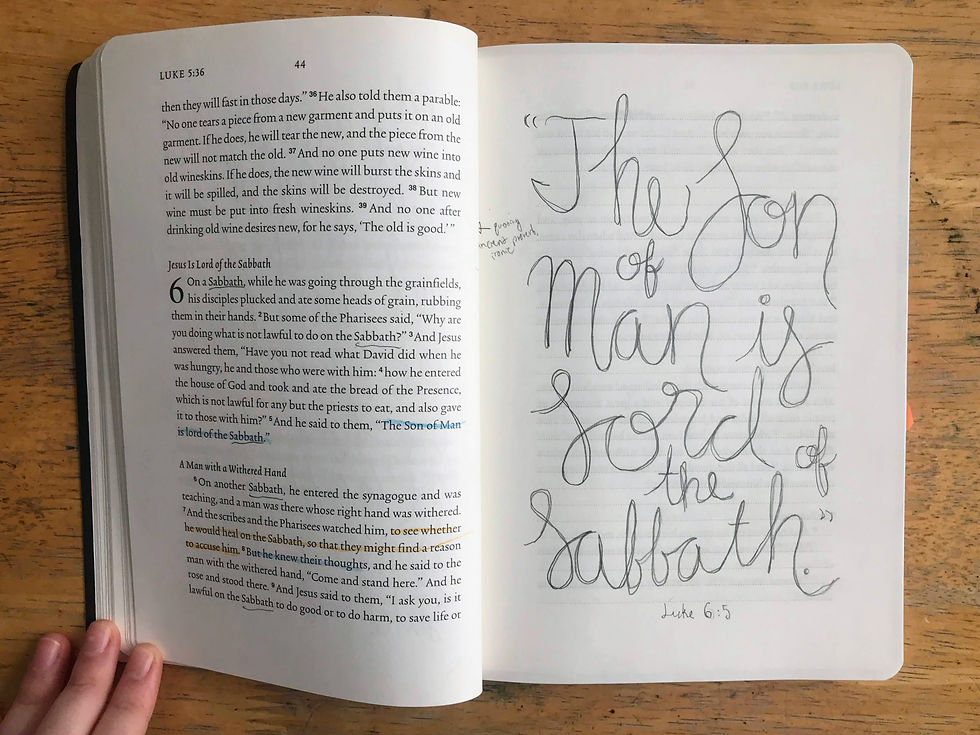 LUKE 5:36
44
then they will fast in those days.” 36 He also told them a parable:
“No one tears a piece from a new garment and puts it on an old
garment. If he does, he will tear the new, and the piece from the
new will not match the old. 37 And no one puts new wine into
old wineskins. If he does, the new wine will burst the skins and
it will be spilled, and the skins will be destroyed. 38 But new
wine must be put into fresh wineskins. 39 And no one after
drinking old wine desires new, for he says, ‘The old is good.’”
Jesus Is Lord of the Sabbath
6 On a Sabbath, while he was going through the grainfields,
his disciples plucked and ate some heads of grain, rubbing
them in their hands. 2 But some of the Pharisees said, “Why are
you doing what is not lawful to do on the Sabbath?” 3 And Jesus
answered them, “Have you not read what David did when he
was hungry, he and those who were with him: 4 how he entered
the house of God and took and ate the bread of the Presence,
which is not lawful for any but the priests to eat, and also gave
it to those with him?” 5 And he said to them, “The Son of Man
is lord of the Sabbath.”
A Man with a Withered Hand
6 On another Sabbath, he entered the synagogue and was
teaching, and a man was there whose right hand was withered.
7 And the scribes and the Pharisees watched him, to see whether
he would heal on the Sabbath, so that they might find a reason
to accuse him. 8 But he knew their thoughts, and he said to the
man with the withered hand, “Come and stand here.” And he
rose and stood there. 9 And Jesus said to them, “I ask you, is it
lawful on the Sabbath to do good or to do harm, to save life or
quoting
ironic proverb,
“The Son
of
Man is
Lord of
the
Sabbath.”
Luke 6:5